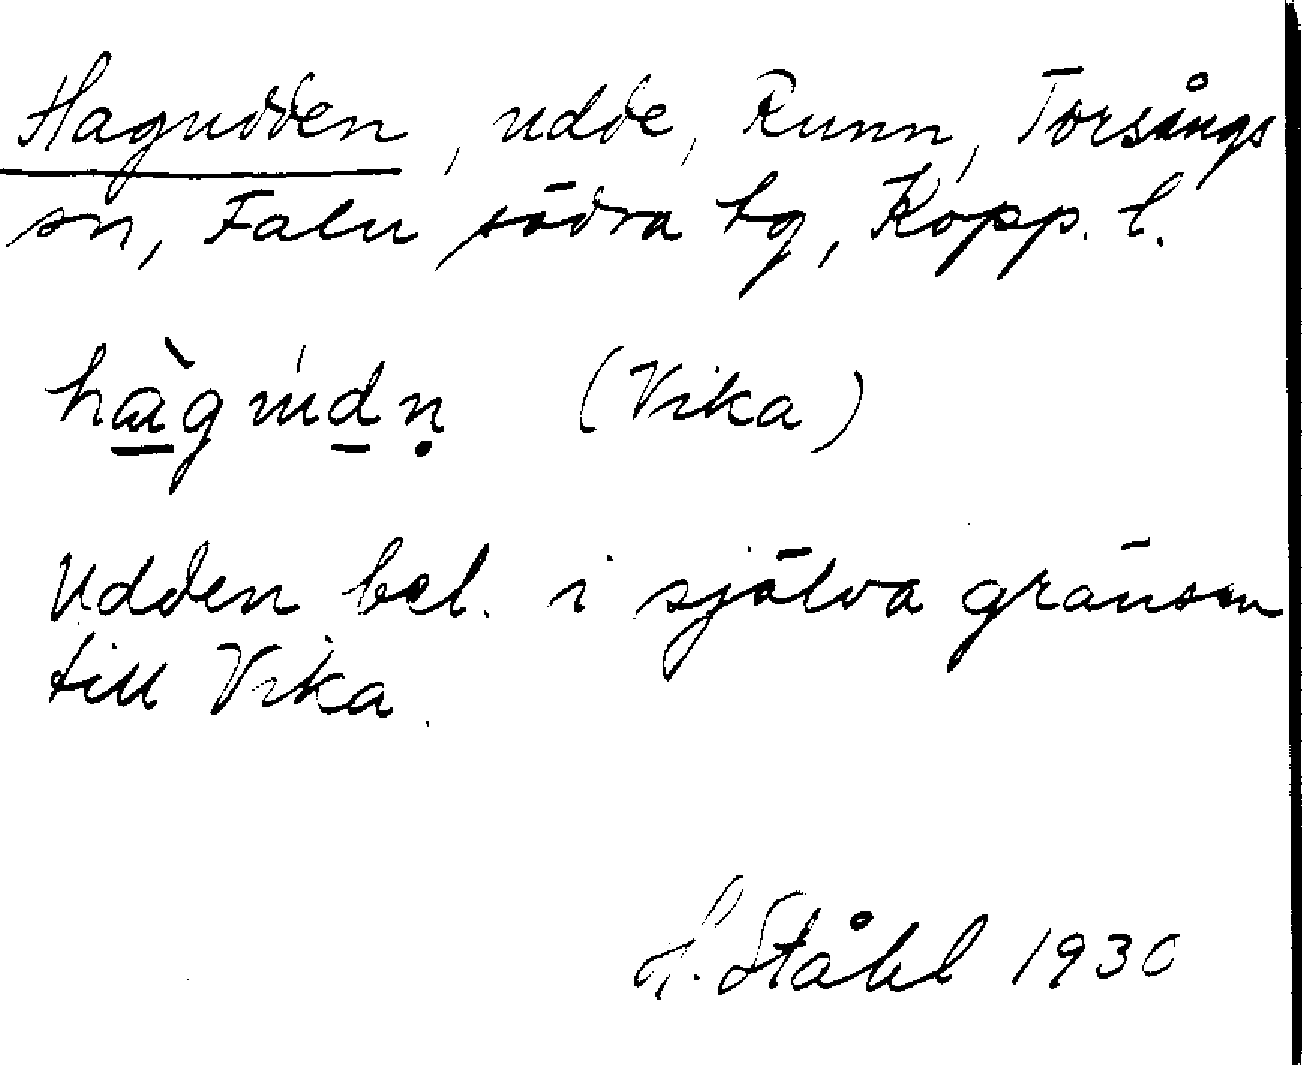 Hagudden, udde, Runn, Torsångs
sn, Falu södra tg, Kopp. l.
(Vika)
Udden bel. i själva gränsen
till Vika.
H. Ståhl 1930